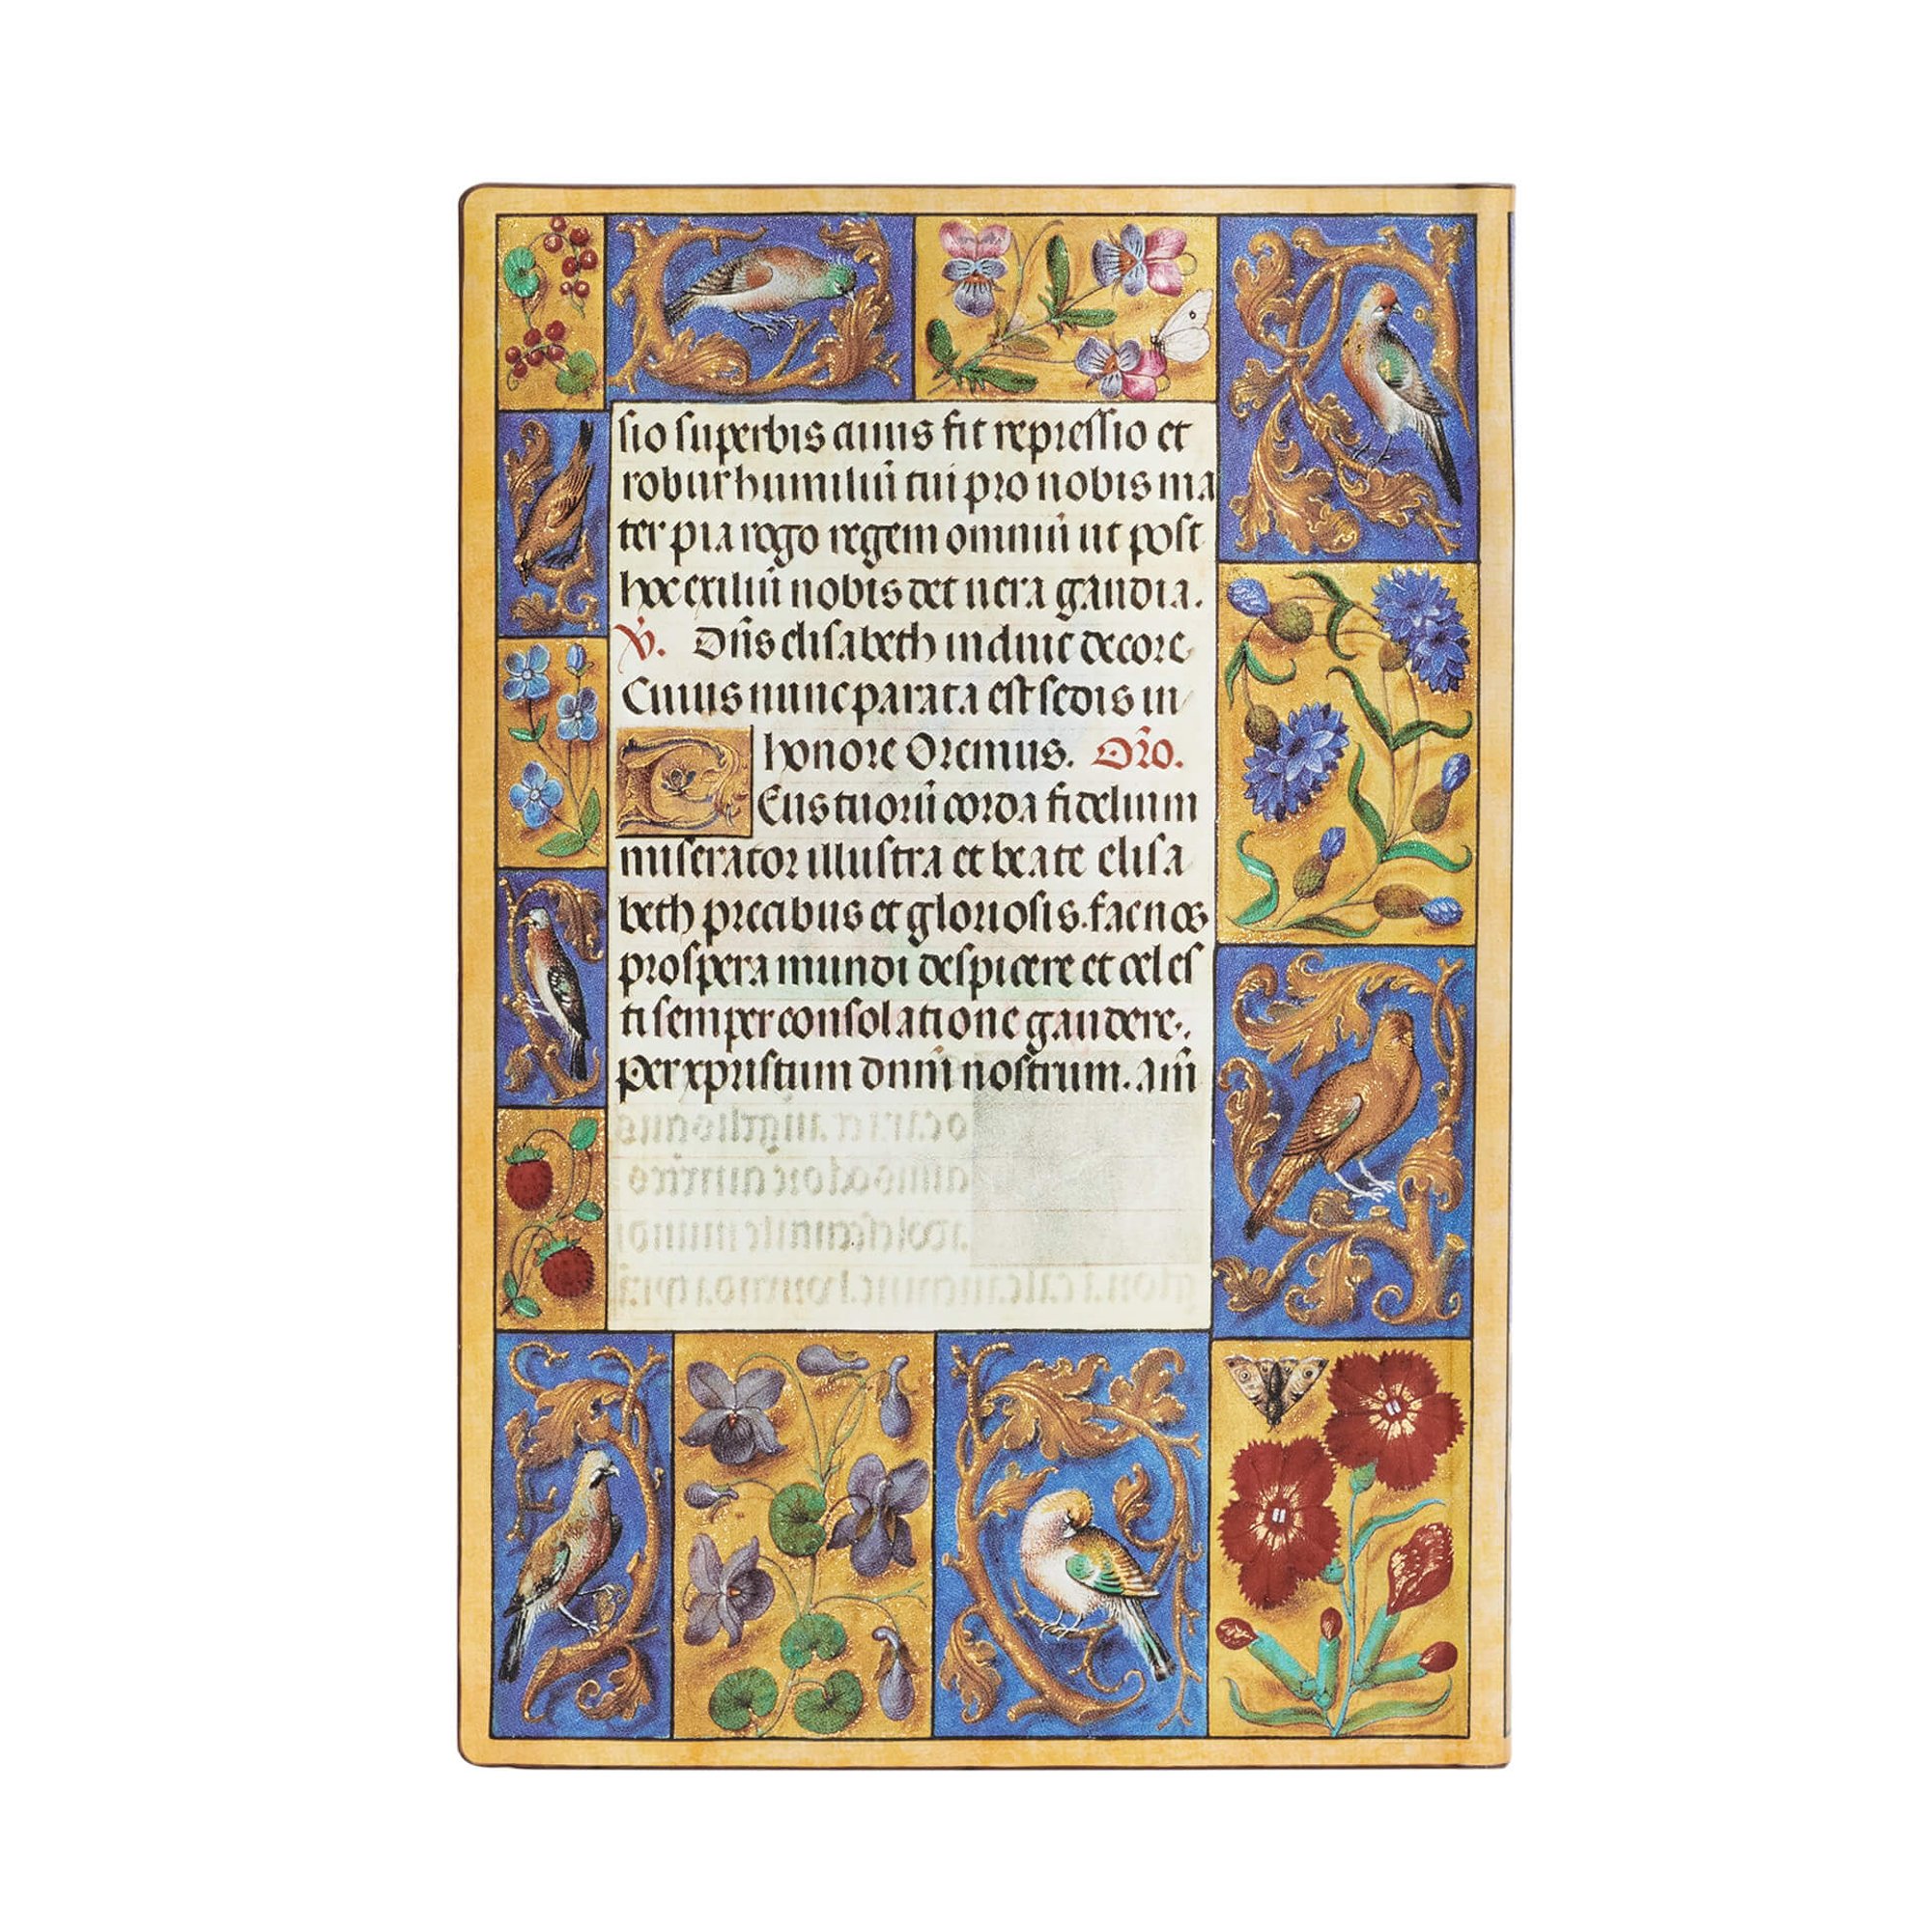 sio superbis cuius fit repressio et
robur humiliū tui pro nobis ma
ter pia rogo regem omniū ut post
hoc exiliū nobis det uera gaudia.
V. Dn̄s elisabeth induit decore
Cuius nunc parata est sedis in
honore Oremus. Or̄o.
Deus tuorū corda fidelium
miserator illustra et beate elisa
beth precibus et gloriosis. fac nos
prospera mundi despicere et celes
ti semper consolatione gaudere.
Per xpristum dnm̄ nostrum. am̄